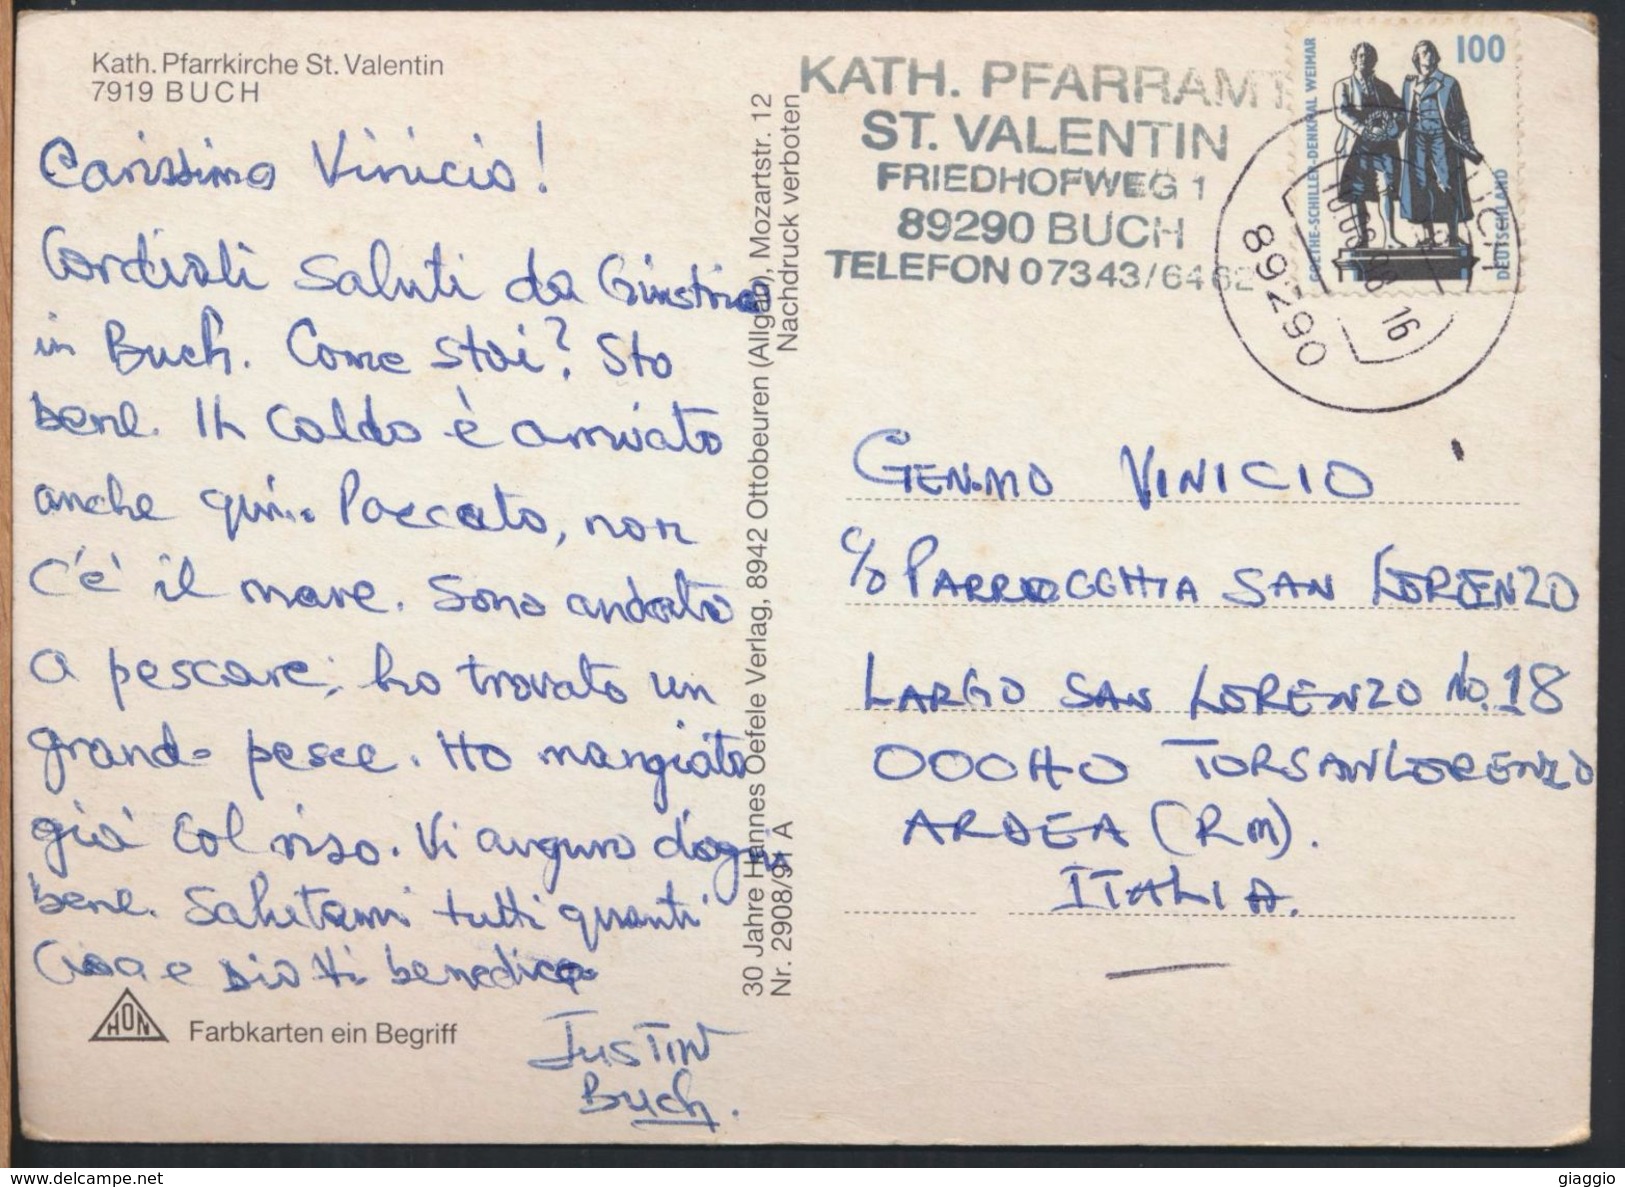 Kath. Pfarrkirche St. Valentin
7919 BUCH
Carissimo Vinicio!
Cordiali saluti da Giustino
in Buch. Come stai? Sto
bene. Il caldo è arrivato
anche qui.. Peccato, non
c'è il mare. Sono andato
a pescare; ho trovato un
grande pesce. Ho mangiato
già col riso. Vi auguro d'ogni
bene. Salutami tutti quanti
Ciao e Dio ti benedica
JUSTIN
Buch.
HON
Farbkarten ein Begriff
30 Jahre Hannes Oefele Verlag, 8942 Ottobeuren (Allgäu), Mozartstr. 12
Nr. 2908/91 A
Nachdruck verboten
KATH. PFARRAMT
ST. VALENTIN
FRIEDHOFWEG 1
89290 BUCH
TELEFON 07343/6462
100
GOETHE-SCHILLER-DENKMAL WEIMAR
DEUTSCHLAND
16
89290
VINICIO
C/O PARROCCHIA SAN LORENZO
LARGO SAN LORENZO No. 18
00040 TORSANLORENZO
ARDEA (RM).
ITALIA.
giaggio